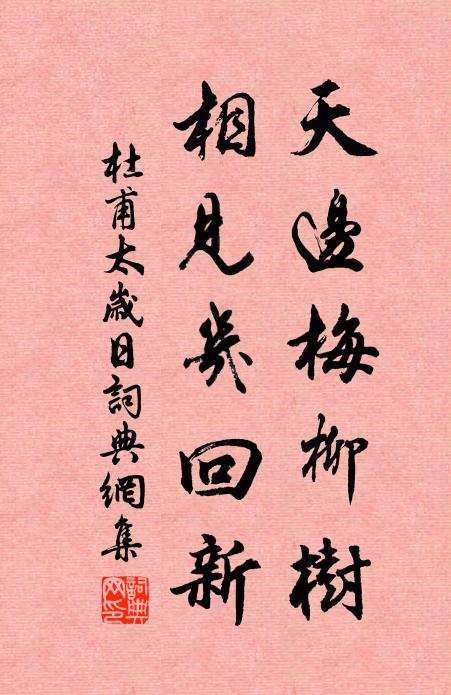 天邊梅柳樹
相見幾回新
杜甫太歲日詞典網集
詞典網印